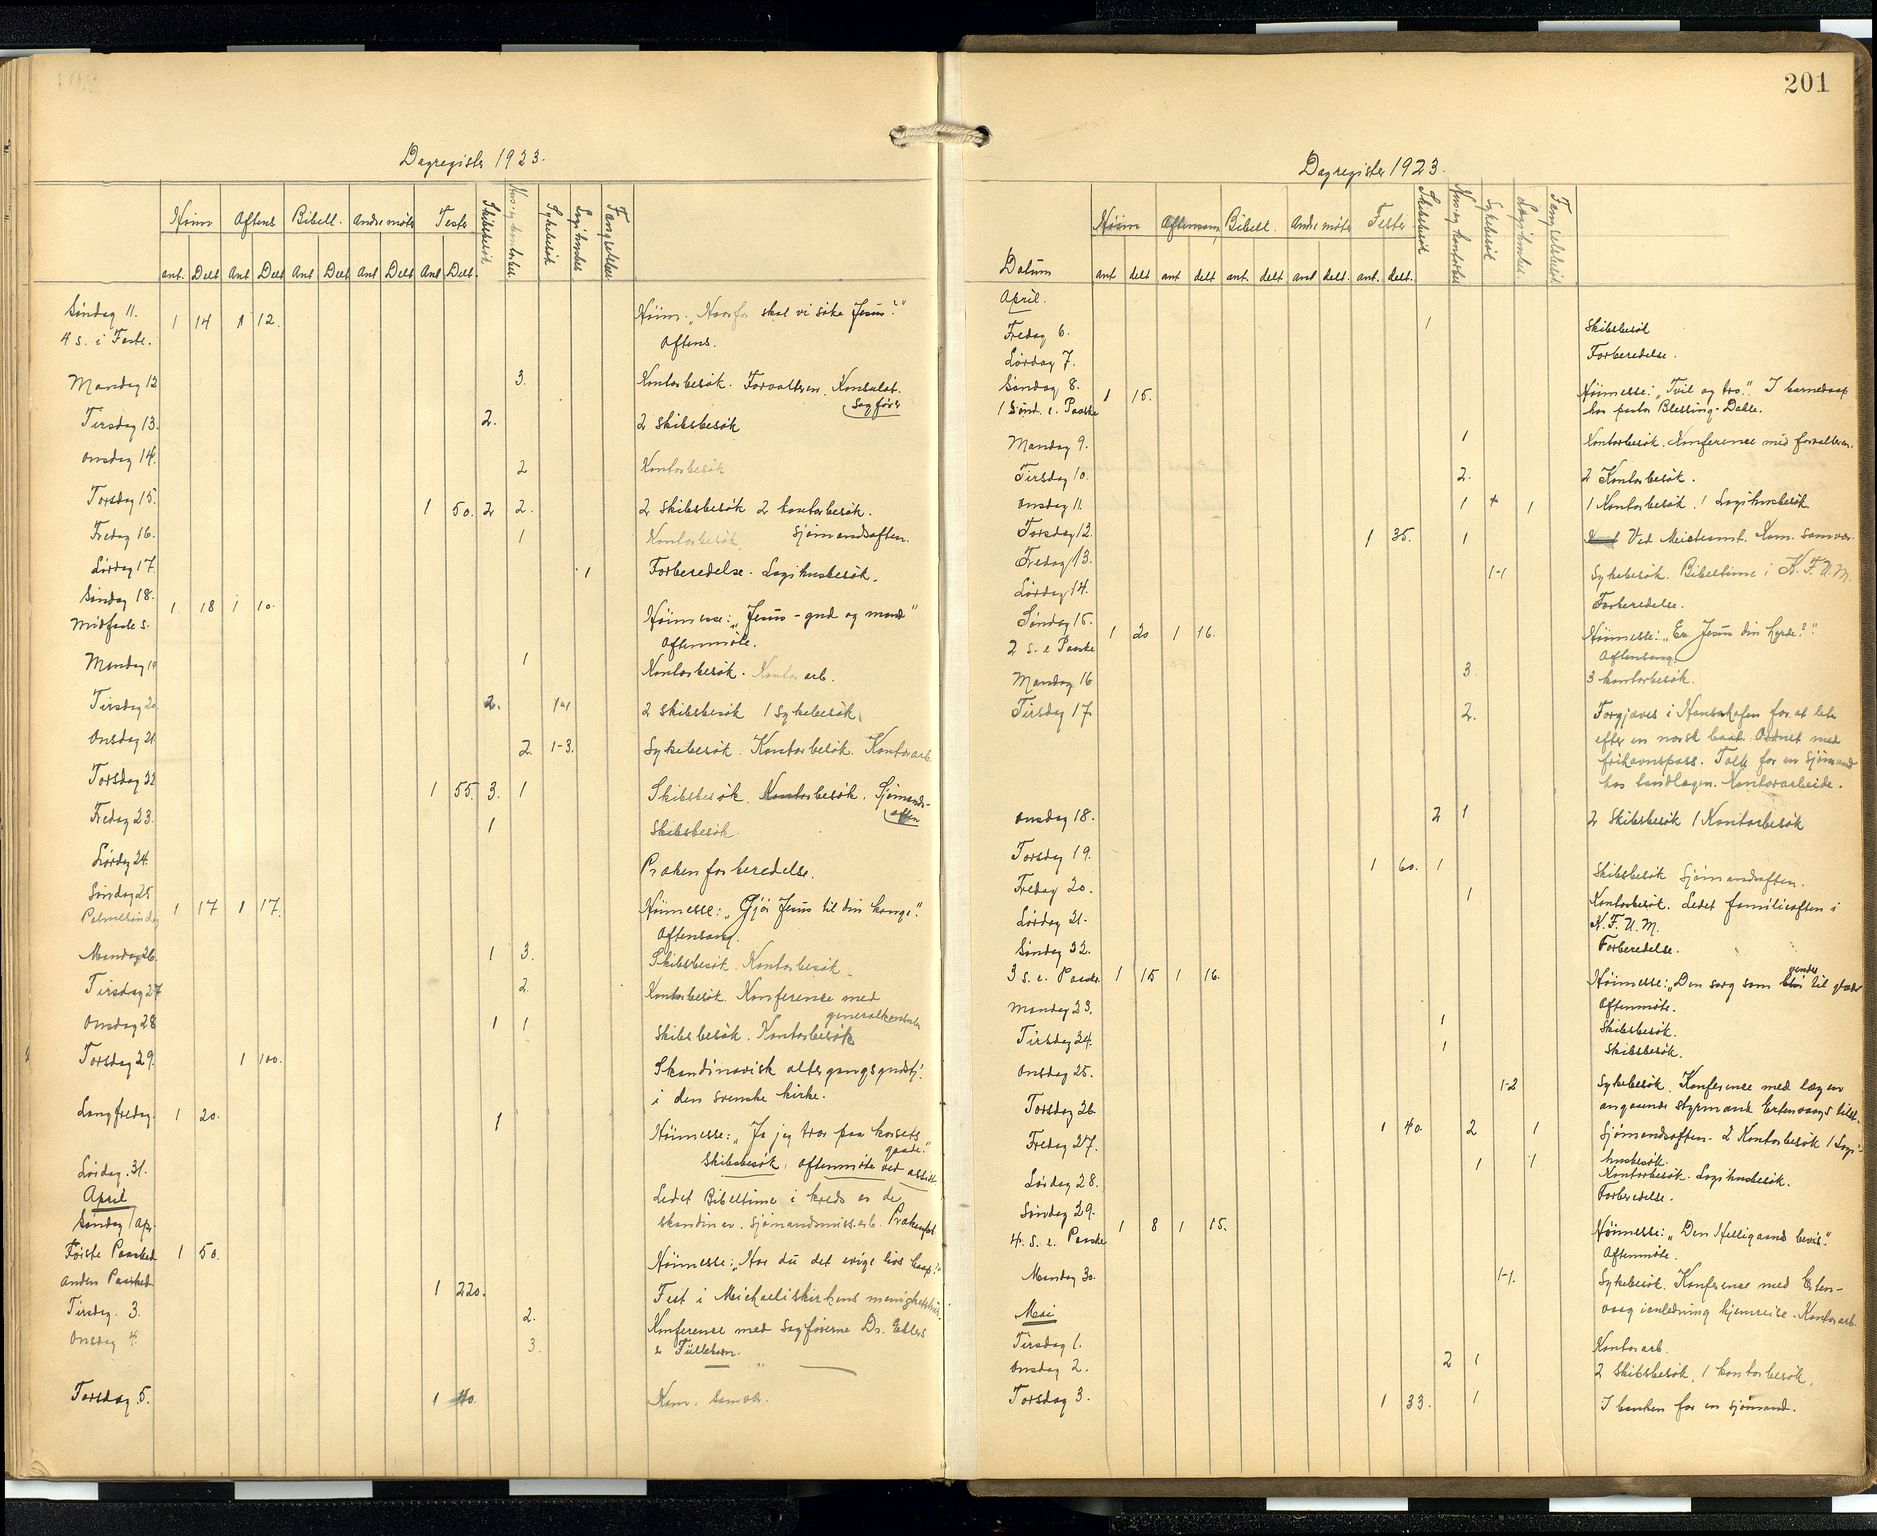 Dagregister 1923.
Høim Aftens Bibell. Andre møter Fester Skibsbesøk Hus og kontorbes. Sykebesøk Logihusbes. Fængselsbes.
ant. Delt Ant Delt Ant Delt Ant Delt Ant Delt.
Søndag 11. 1 14 1 12. Høim. „Hvorfor skal vi søke Jesus?"
4 s. i Faste. Aftens.
Mandag 12 3. Kontorbesøk. Forvalteren. Konsulat.
Sagfører
Tirsdag 13. 2. 2 Skibsbesøk
Onsdag 14. 2 Kontorbesøk
Torsdag 15. 1 50. 2 2. 2 Skibsbesøk 2 kontorbesøk.
Sjømandsaften.
Fredag 16. 1 Kontorbesøk.
Lørdag 17. 1 Forberedelse. Logihusbesøk.
Søndag 18. 1. 18 1 10. Høimesse: „Jesus - gud og mand"
Midfaste s. Aftenmøte.
Mandag 19 1 Kontorbesøk. Kontorarb.
Tirsdag 20 2. 1-1 2 Skibsbesøk 1 Sykebesøk.
Onsdag 21 2. 1-3. Sykebesøk. Kontorbesøk. Kontorarb.
Torsdag 22 1 55. 3. 1 Skibsbesøk. Kontorbesøk. Sjømands-
aften
Fredag 23. 1 Skibsbesøk.
Lørdag 24. Prækenforberedelse.
Søndag 25 1 17 1 17. Høimesse: „Gjør Jesus til din konge".
Palmesøndag Aftensang.
Mandag 26. 1 3. Skibsbesøk. Kontorbesøk.
Tirsdag 27 2. Kontorbesøk. Konference med
generalkonsulen
Onsdag 28 1 1 Skibsbesøk. Kontorbesøk
Torsdag 29. 1 100. Skandinavisk altergangsgudstj.
i den svenske kirke.
Langfredag. 1 20. 1 Høimesse: „Ja jeg tror paa korsets
gaade."
Skibsbesøk, aftenmøte ved assist.
Lørdag. 31. Ledet Bibeltime i kreds av de
April skandinav. sjømandsmiss.arb.
Søndag 1 apr.
Første Paasked 1 50. Høimesse: „Har du det evige livs haap?"
Anden Paasked 1 220. Fest i Michaeliskirkens menighetshus.
Tirsdag. 3. 2. Konference med Sagførerne Dr. Ehlers
Onsdag 4. 3. & Fülleborn.
"
Torsdag 5. 1 40. Kam. samvær.
201
Dagregister 1923.
Datum Høim Aftensang Bibell. Andre møter Fester Skibsbesøk Hus og kontorbes Sykebesøk Logihusbes. Fængselsbesøk.
ant delt ant delt ant. delt ant delt. ant. delt.
April.
Fredag 6. 1 Skibsbesøk
Lørdag 7. Forberedelse.
Søndag 8. 1 15. Høimesse: „Tvil og tro." I barnedaap
1 Sønd. e. Paaske hos pastor Blessing-Dahle.
Mandag 9. 1 Kontorbesøk. Konference med forvalteren.
Tirsdag 10. 2. 2 Kontorbesøk.
Onsdag 11. 1 + 1 1 Kontorbesøk. 1 Logihusbesøk.
Torsdag 12. 1 35. 1 Ved Mieteamt. Kam. samvær.
Fredag 13. 1-1 Sykebesøk. Bibeltime i K.F.U.M.
Lørdag 14. Forberedelse.
Søndag 15. 1 20 1 16. Høimesse: „Er Jesus din hyrde?"
2 s. e Paaske Aftensang.
Mandag 16 3. 3 kontorbesøk.
Tirsdag 17. 2. Forgjæves i Hansahafen for at lete
efter en norsk baat. Ordnet med
frihavnspass. Tolk for en sjømand
hos tandlægen. Kontorarbeide.
Onsdag 18. 2 1 2 Skibsbesøk 1 Kontorbesøk
Torsdag 19. 1 60. 1 Skibsbesøk Sjømandsaften.
Fredag 20. 1 Kontorbesøk. Ledet familieaften i
K.F.U.M.
Lørdag 21. Forberedelse.
Søndag 22.
3 s. e. Paaske 1 15 1 16. Høimesse: „Den sorg som vendes til glæde
Aftenmøte.
Mandag 23. 1 Skibsbesøk.
Tirsdag 24. 1 Skibsbesøk.
Onsdag 25. 1-2 Sykebesøk. Konference med lægen
angaaende styrmand Ertenvaags tilst.
Torsdag 26. 1 40. 2 1 Sjømandsaften. 2 Kontorbesøk 1 Logi-
husbesøk.
Fredag 27. 1 1 Kontorbesøk. Logihusbesøk.
Lørdag 28. Forberedelse.
Søndag 29. 1 8 1 15. Høimesse: „Den Helligaands bevis".
4. S. e. Paaske Aftenmøte.
Mandag 30. 1-1. Sykebesøk. Konference med Erten-
vaag i anledning hjemreise. Kontorarb.
Mai
Tirsdag 1. Kontorarb.
Onsdag 2. 2 1 2 Skibsbesøk, 1 kontorbesøk.
Torsdag 3. 1 33. 1 I banken for en sjømand.